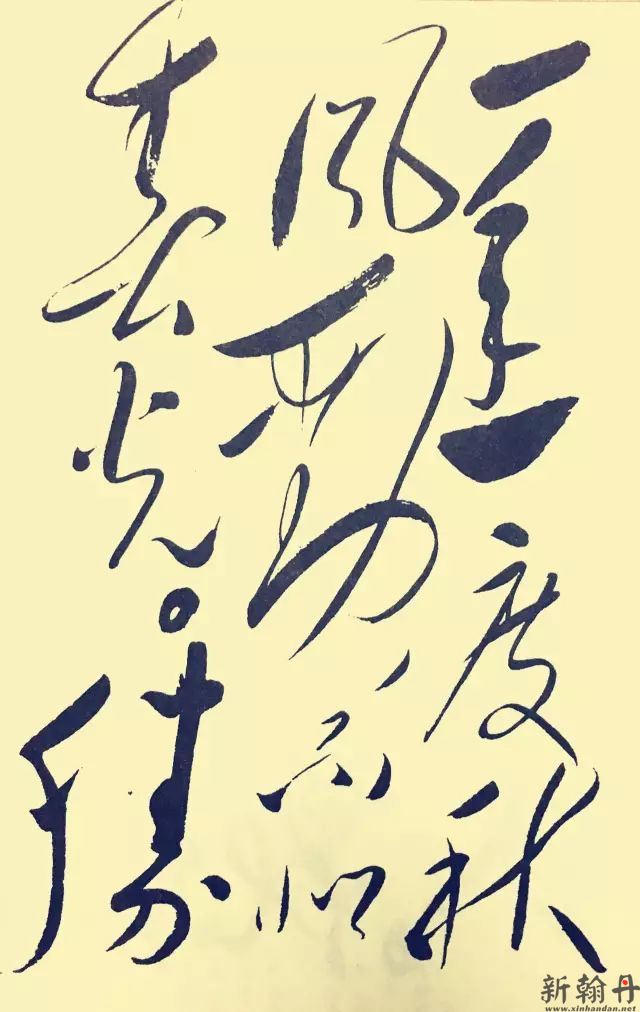 一年一度秋
風勁不似
春光。勝
新翰丹
www.xinhandan.net